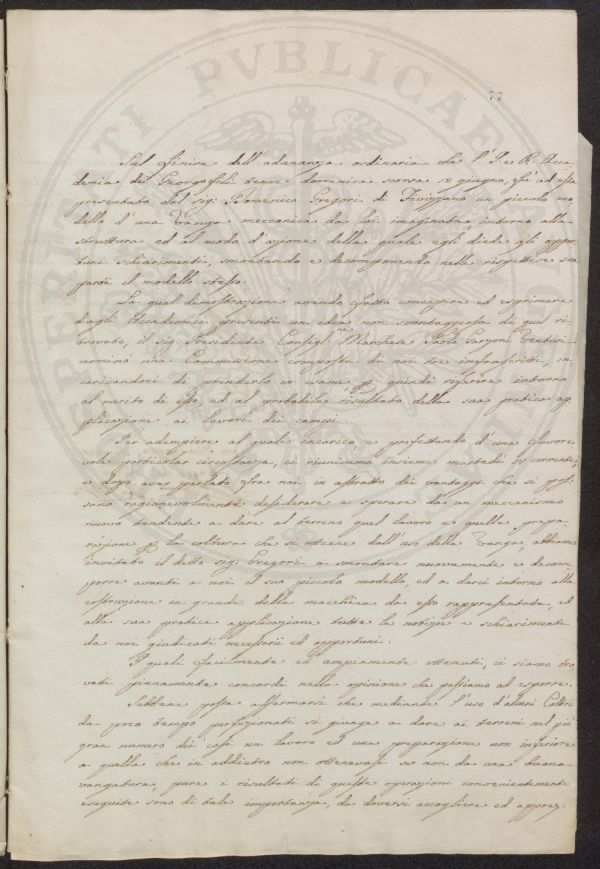 PROSPERITATI PVBLICAE
77
Sul finire dell'adunanza ordinaria che l'I. e R. Acca-
demia dei Georgofili tenne domenica scorsa 12 giugno, fu ad essa
presentato dal sig: Domenico Gregori di Fivizzano un piccolo mo
dello d'una Vanga meccanica da lui immaginata, intorno alla
struttura ed al modo d'azione della quale egli diede gli oppor
tuni schiarimenti, smontando e decomponendo nelle rispettive sue
parti il modello stesso.
La qual dimostrazione avendo fatto concepire ed esprimere
dagli Accademici presenti un'idea non svantaggiosa di quel ri-
trovato, il sig: Presidente Consigl: Marchese Paolo Garzoni Venturi
nominò una Commissione composta di noi tre infrascritti, in
caricandoci di prenderlo in esame p quindi referire intorno
al merito di esso, ed al probabile resultato della sua pratica ap
plicazione ai lavori dei campi.
Per adempiere al quale incarico, e profittando d'una favore
vole particolar circostanza, ci riunimmo insieme martedì corrente,
e dopo aver parlato fra noi in astratto dei vantaggi che si pos
sano ragionevolmente desiderare e sperare da un meccanismo
nuovo tendente a dare al terreno quel lavoro e quella prepa-
razione p la coltura che si ottiene dall'uso della Vanga, abbiamo
invitato il detto sig: Gregori a smontare nuovamente e decom
porre avanti a noi il suo piccolo modello, ed a darci intorno alla
costruzione in grande della macchina da esso rappresentata, ed
alla sua pratica applicazione tutte le notizie e schiarimenti
da noi giudicati necessarii ed opportuni.
I quali facilmente ed ampiamente ottenuti, ci siamo tro
vati pienamente concordi nella opinione che passiamo ad esporre.
Sebbene possa affermarsi che mediante l'uso d'alcuni Coltri
da poco tempo perfezionati si giunge a dare ai terreni nel più
gran numero dei casi un lavoro ed una preparazione non inferiore
a quella che in addietro non ottenevasi se non da una buona
vangatura, pure i risultati di queste operazioni convenientemente
eseguite sono di tale importanza, da doversi accogliere ed apprez-